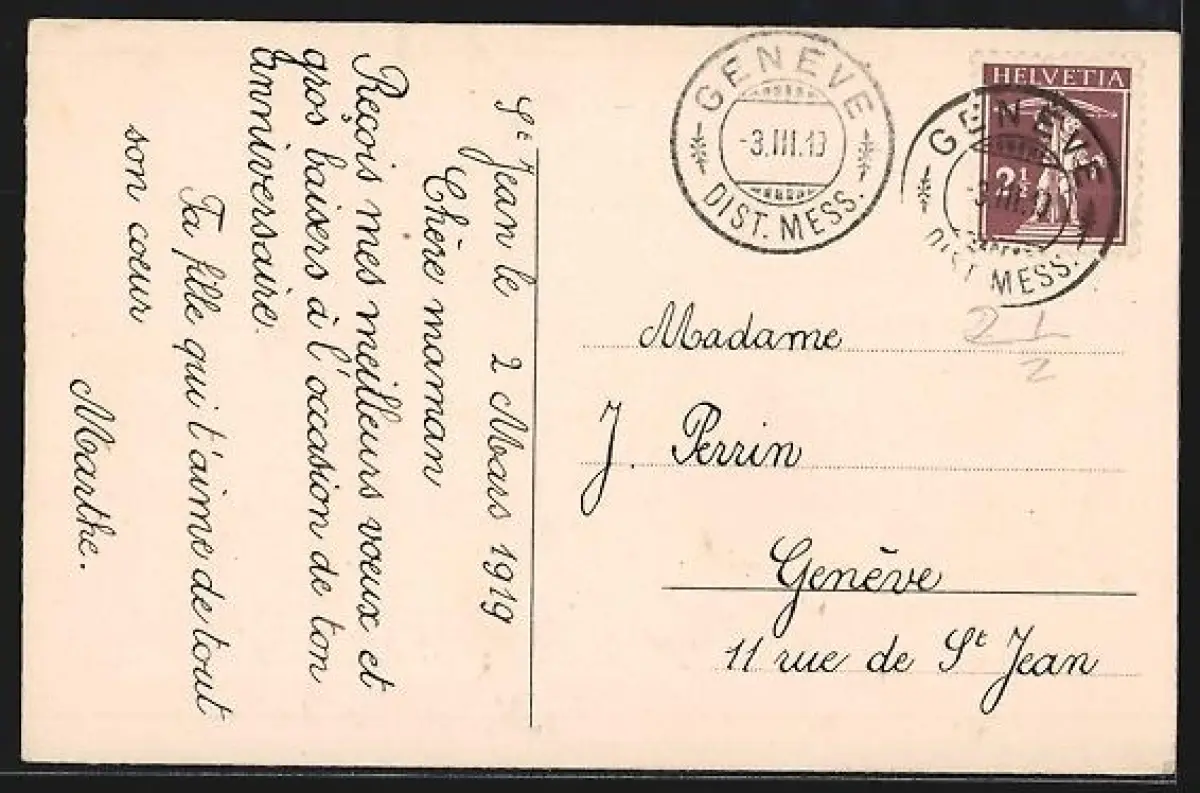 St Jean le 2 Mars 1919
Chère maman
Reçois mes meilleurs voeux et
gros baisers à l'occasion de ton
anniversaire.
Ta fille qui t'aime de tout
son cœur
Marthe.
GENÈVE
-3.III.19
DIST. MESS.
HELVETIA
2½
GENÈVE
DIST. MESS.
Madame
J. Perrin
Genève
11 rue de St Jean